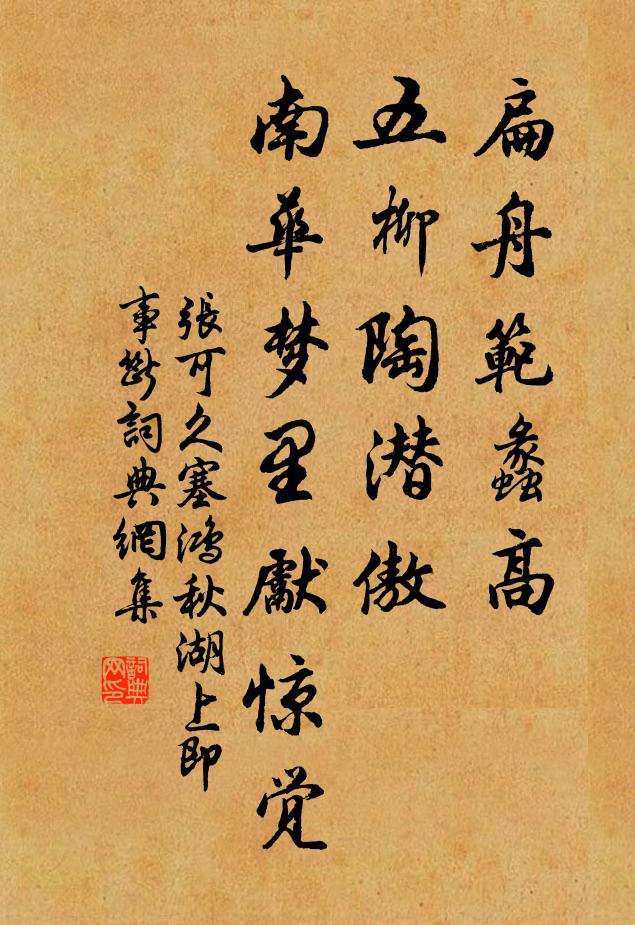 扁舟範蠡高
五柳陶潜傲
南華梦里獻惊觉
張可久塞鸿秋湖上即
事詞典網集
詞典
网印